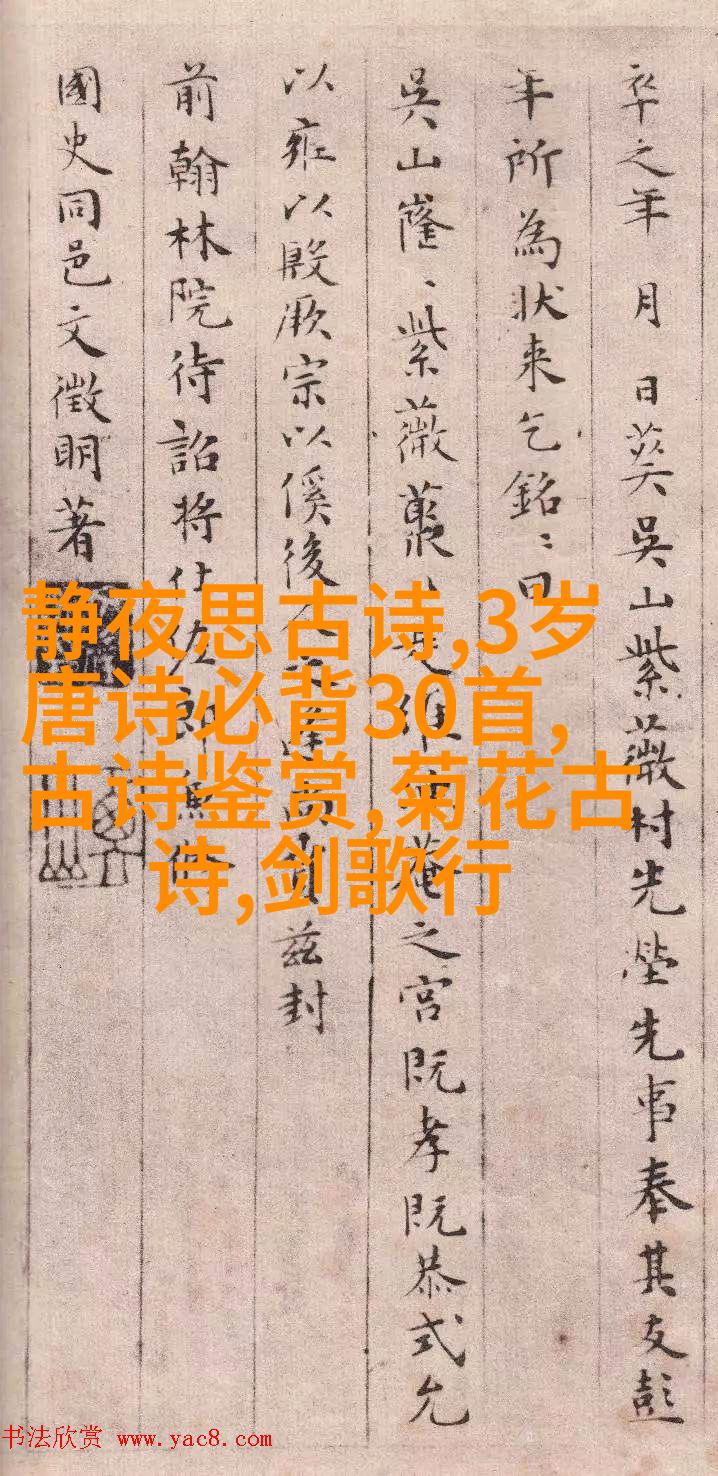 卒之年 月 日葬吳山紫薇村先塋先事奉其友彭
年所為狀来乞銘〻曰
吳山窿〻紫薇叢
之宮既孝既恭式允
以雍以殷厥宗以傒後
兹封
前翰林院待詔將仕佐郎兼修
國史同邑文徵明著
静夜思古诗,3岁
唐诗必背30首,
古诗鉴赏,菊花古
诗,剑歌行
书法欣赏 www.yac8.com